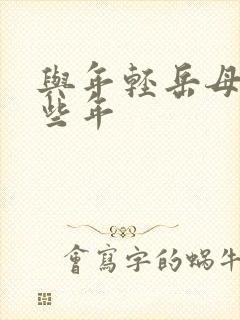 與年輕岳母
些年
會寫字的蝸牛